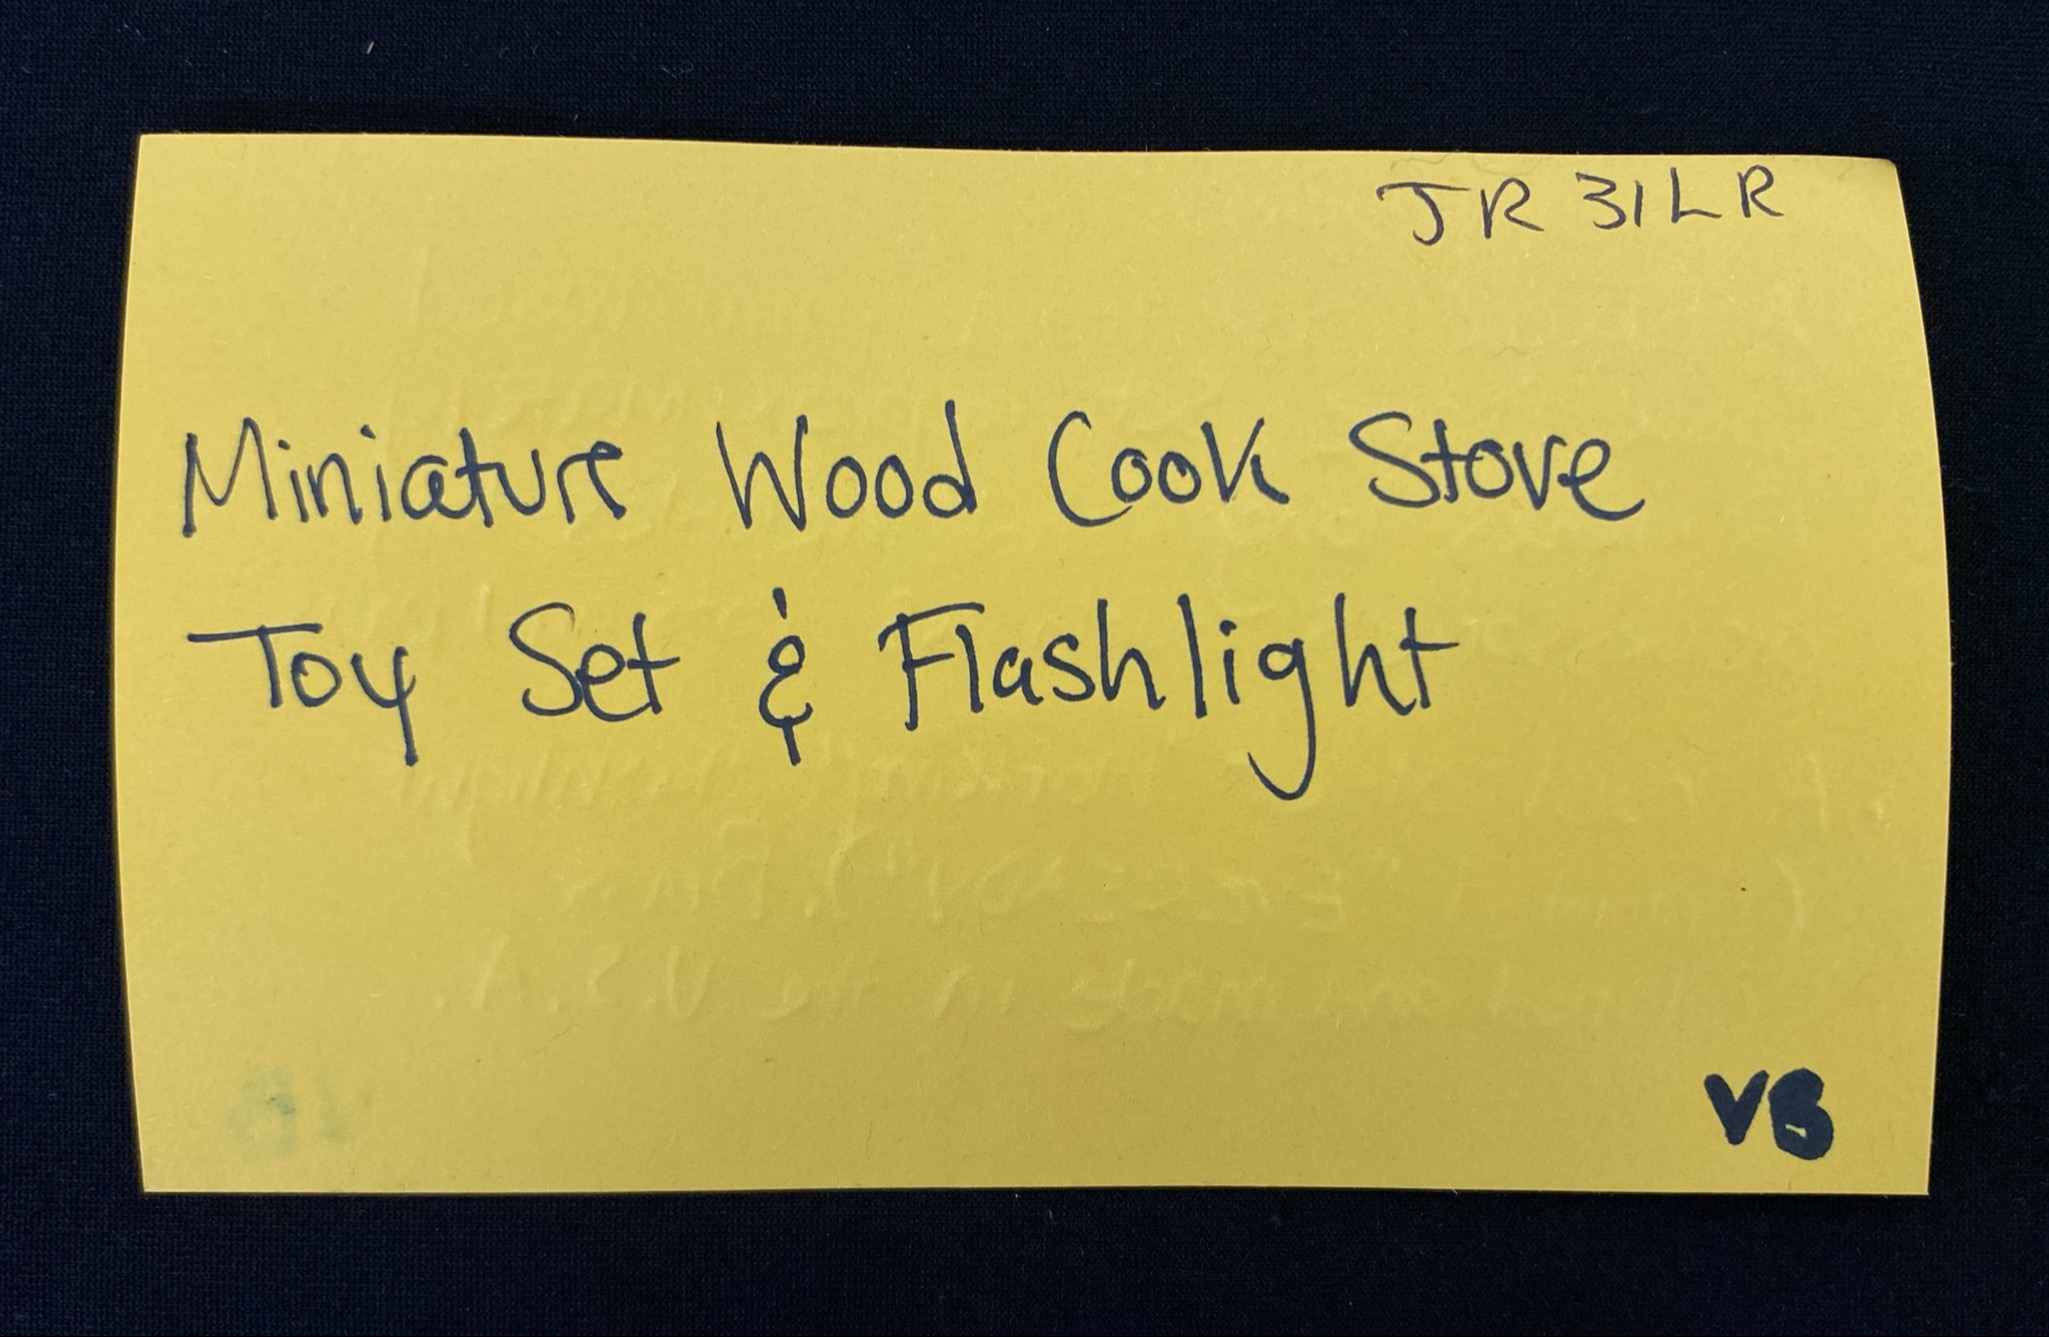 JR 31LR
Miniature Wood Cook Stove
Toy Set & Flashlight
VB